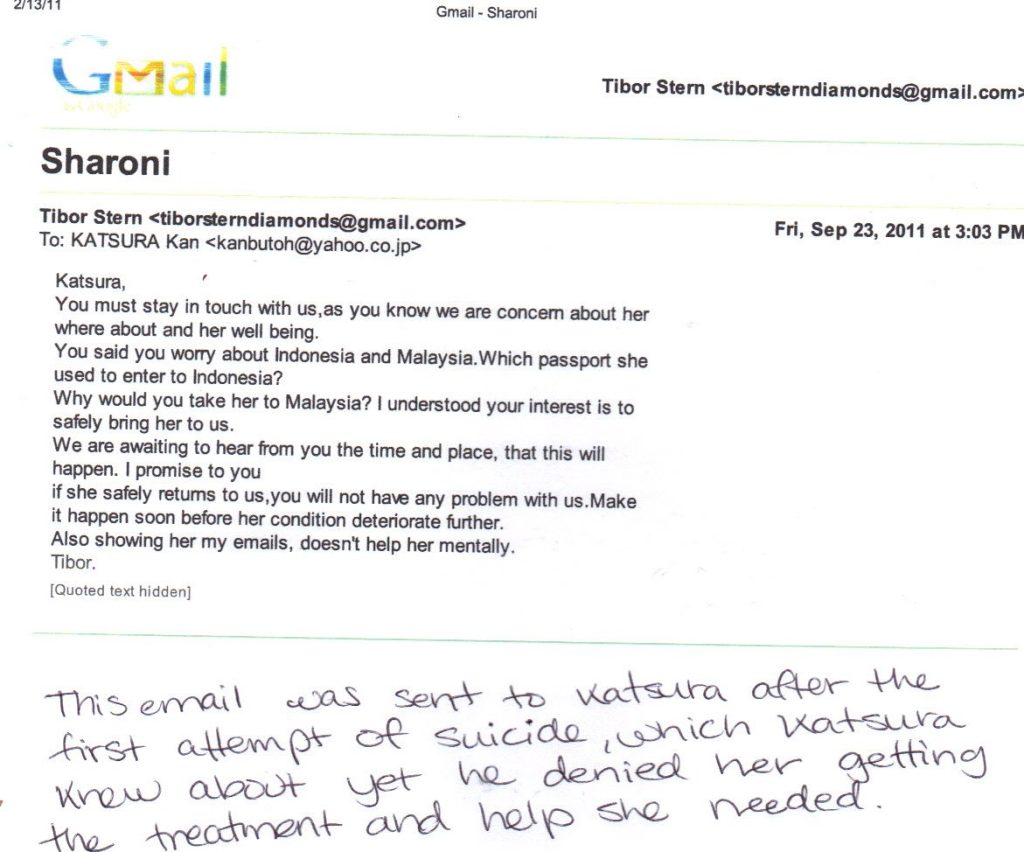 2/13/11
Gmail - Sharoni
Gmail
by Google
Tibor Stern <tiborsterndiamonds@gmail.com>
Sharoni
Tibor Stern <tiborsterndiamonds@gmail.com>
Fri, Sep 23, 2011 at 3:03 PM
To: KATSURA Kan <kanbutoh@yahoo.co.jp>
Katsura,
You must stay in touch with us,as you know we are concern about her
where about and her well being.
You said you worry about Indonesia and Malaysia.Which passport she
used to enter to Indonesia?
Why would you take her to Malaysia? I understood your interest is to
safely bring her to us.
We are awaiting to hear from you the time and place, that this will
happen. I promise to you
if she safely returns to us,you will not have any problem with us.Make
it happen soon before her condition deteriorate further.
Also showing her my emails, doesn't help her mentally.
Tibor.
[Quoted text hidden]
This email was sent to Katsura after the
first attempt of suicide, which Katsura
knew about yet he denied her getting
the treatment and help she needed.